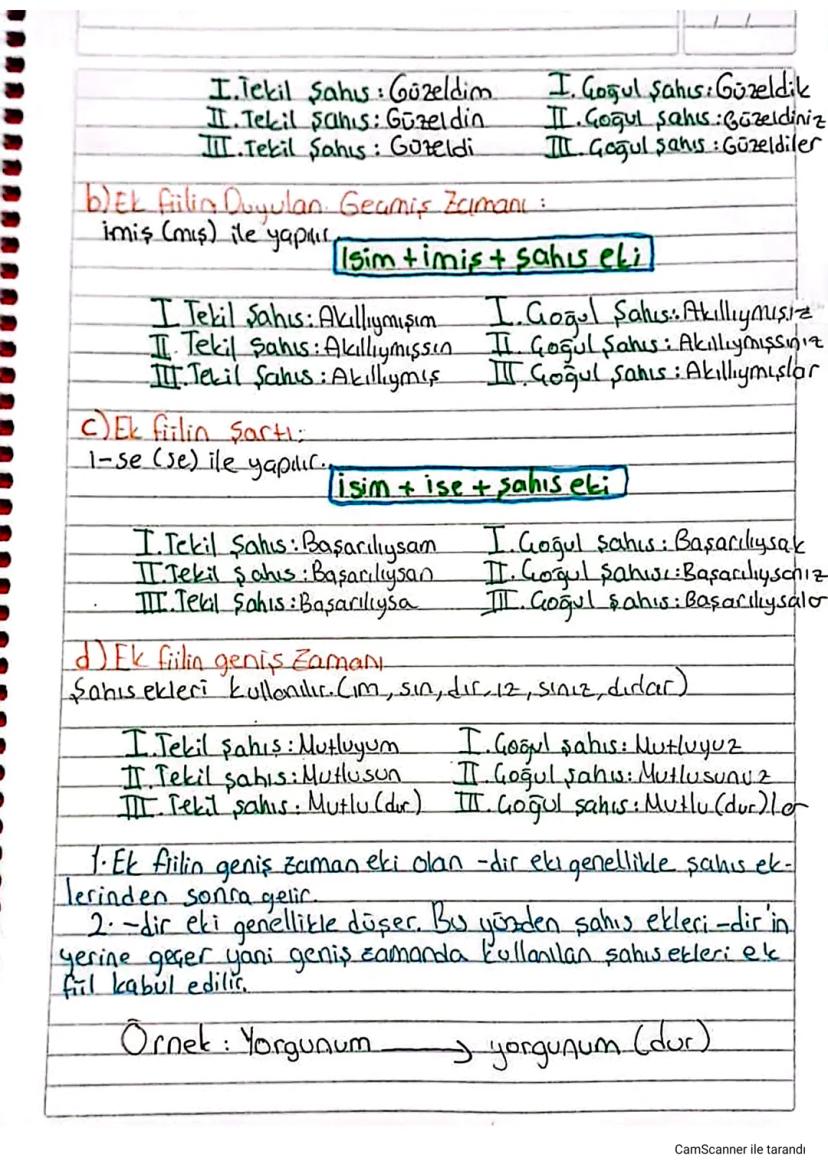 / /
I. Tekil Şahıs : Güzeldim I. Çoğul Şahıs : Güzeldik
II. Tekil Şahıs : Güzeldin II. Çoğul Şahıs : Güzeldiniz
III. Tekil Şahıs : Güzeldi III. Çoğul Şahıs : Güzeldiler
b) Ek fiilin Duyulan Geçmiş Zamanı :
imiş (mış) ile yapılır.
İsim + imiş + şahıs eki
I Tekil Şahıs : Akıllıymışım I. Çoğul Şahıs : Akıllıymışız
II. Tekil Şahıs : Akıllıymışsın II. Çoğul Şahıs : Akıllıymışsınız
III. Tekil Şahıs : Akıllıymış III. Çoğul Şahıs : Akıllıymışlar
c) Ek fiilin Şartı :
ı-se (se) ile yapılır.
isim + ise + şahıs eki
I. Tekil Şahıs : Başarılıysam I. Çoğul Şahıs : Başarılıysak
II Tekil Şahıs : Başarılıysan II. Çoğul Şahıs : Başarılıysanız
III. Tekil Şahıs : Başarılıysa III. Çoğul Şahıs : Başarılıysalar
d) Ek fiilin geniş zamanı
Şahıs ekleri kullanılır. (ım, sın, dır, ız, sınız, dırlar)
I. Tekil Şahıs : Mutluyum I. Çoğul Şahıs : Mutluyuz
II. Tekil Şahıs : Mutlusun II Çoğul Şahıs : Mutlusunuz
III. Tekil Şahıs : Mutlu (dur) III. Çoğul Şahıs : Mutlu (dur)lar
1. Ek fiilin geniş zaman eki olan -dir eki genellikle şahıs ek-
lerinden sonra gelir.
2. -dir eki genellikle düşer. Bu yüzden şahıs ekleri -dir'in
yerine geçer yani geniş zamanda kullanılan şahıs ekleri ek
fiil kabul edilir.
Örnek : Yorgunum → yorgunum (dur)
CamScanner ile tarandı